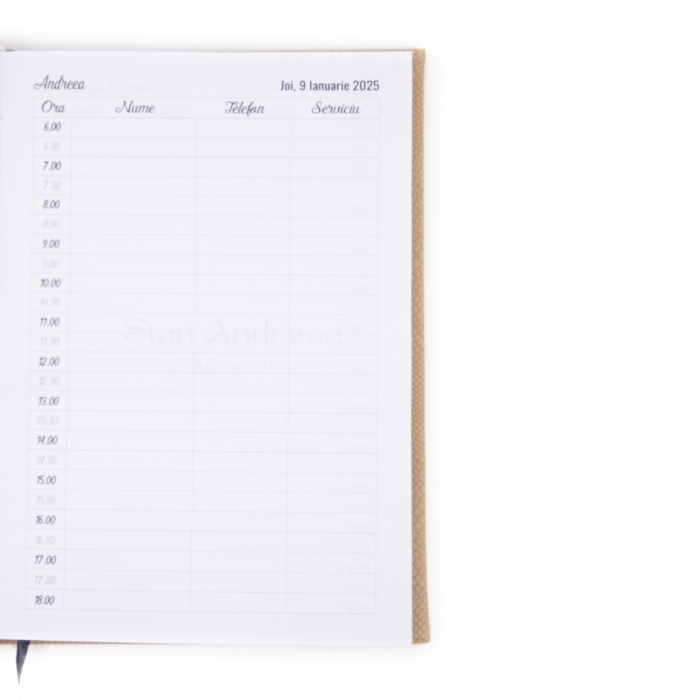 Andreea
Joi, 9 Ianuarie 2025
Ora Nume Telefon Serviciu
6.00
6.30
7.00
7.30
8.00
8.30
9.00
9.30
10.00
10.30
11.00
Stan Andreea
11.30
12.00
12.30
13.00
13.30
14.00
14.30
15.00
15.30
16.00
16.30
17.00
17.30
18.00